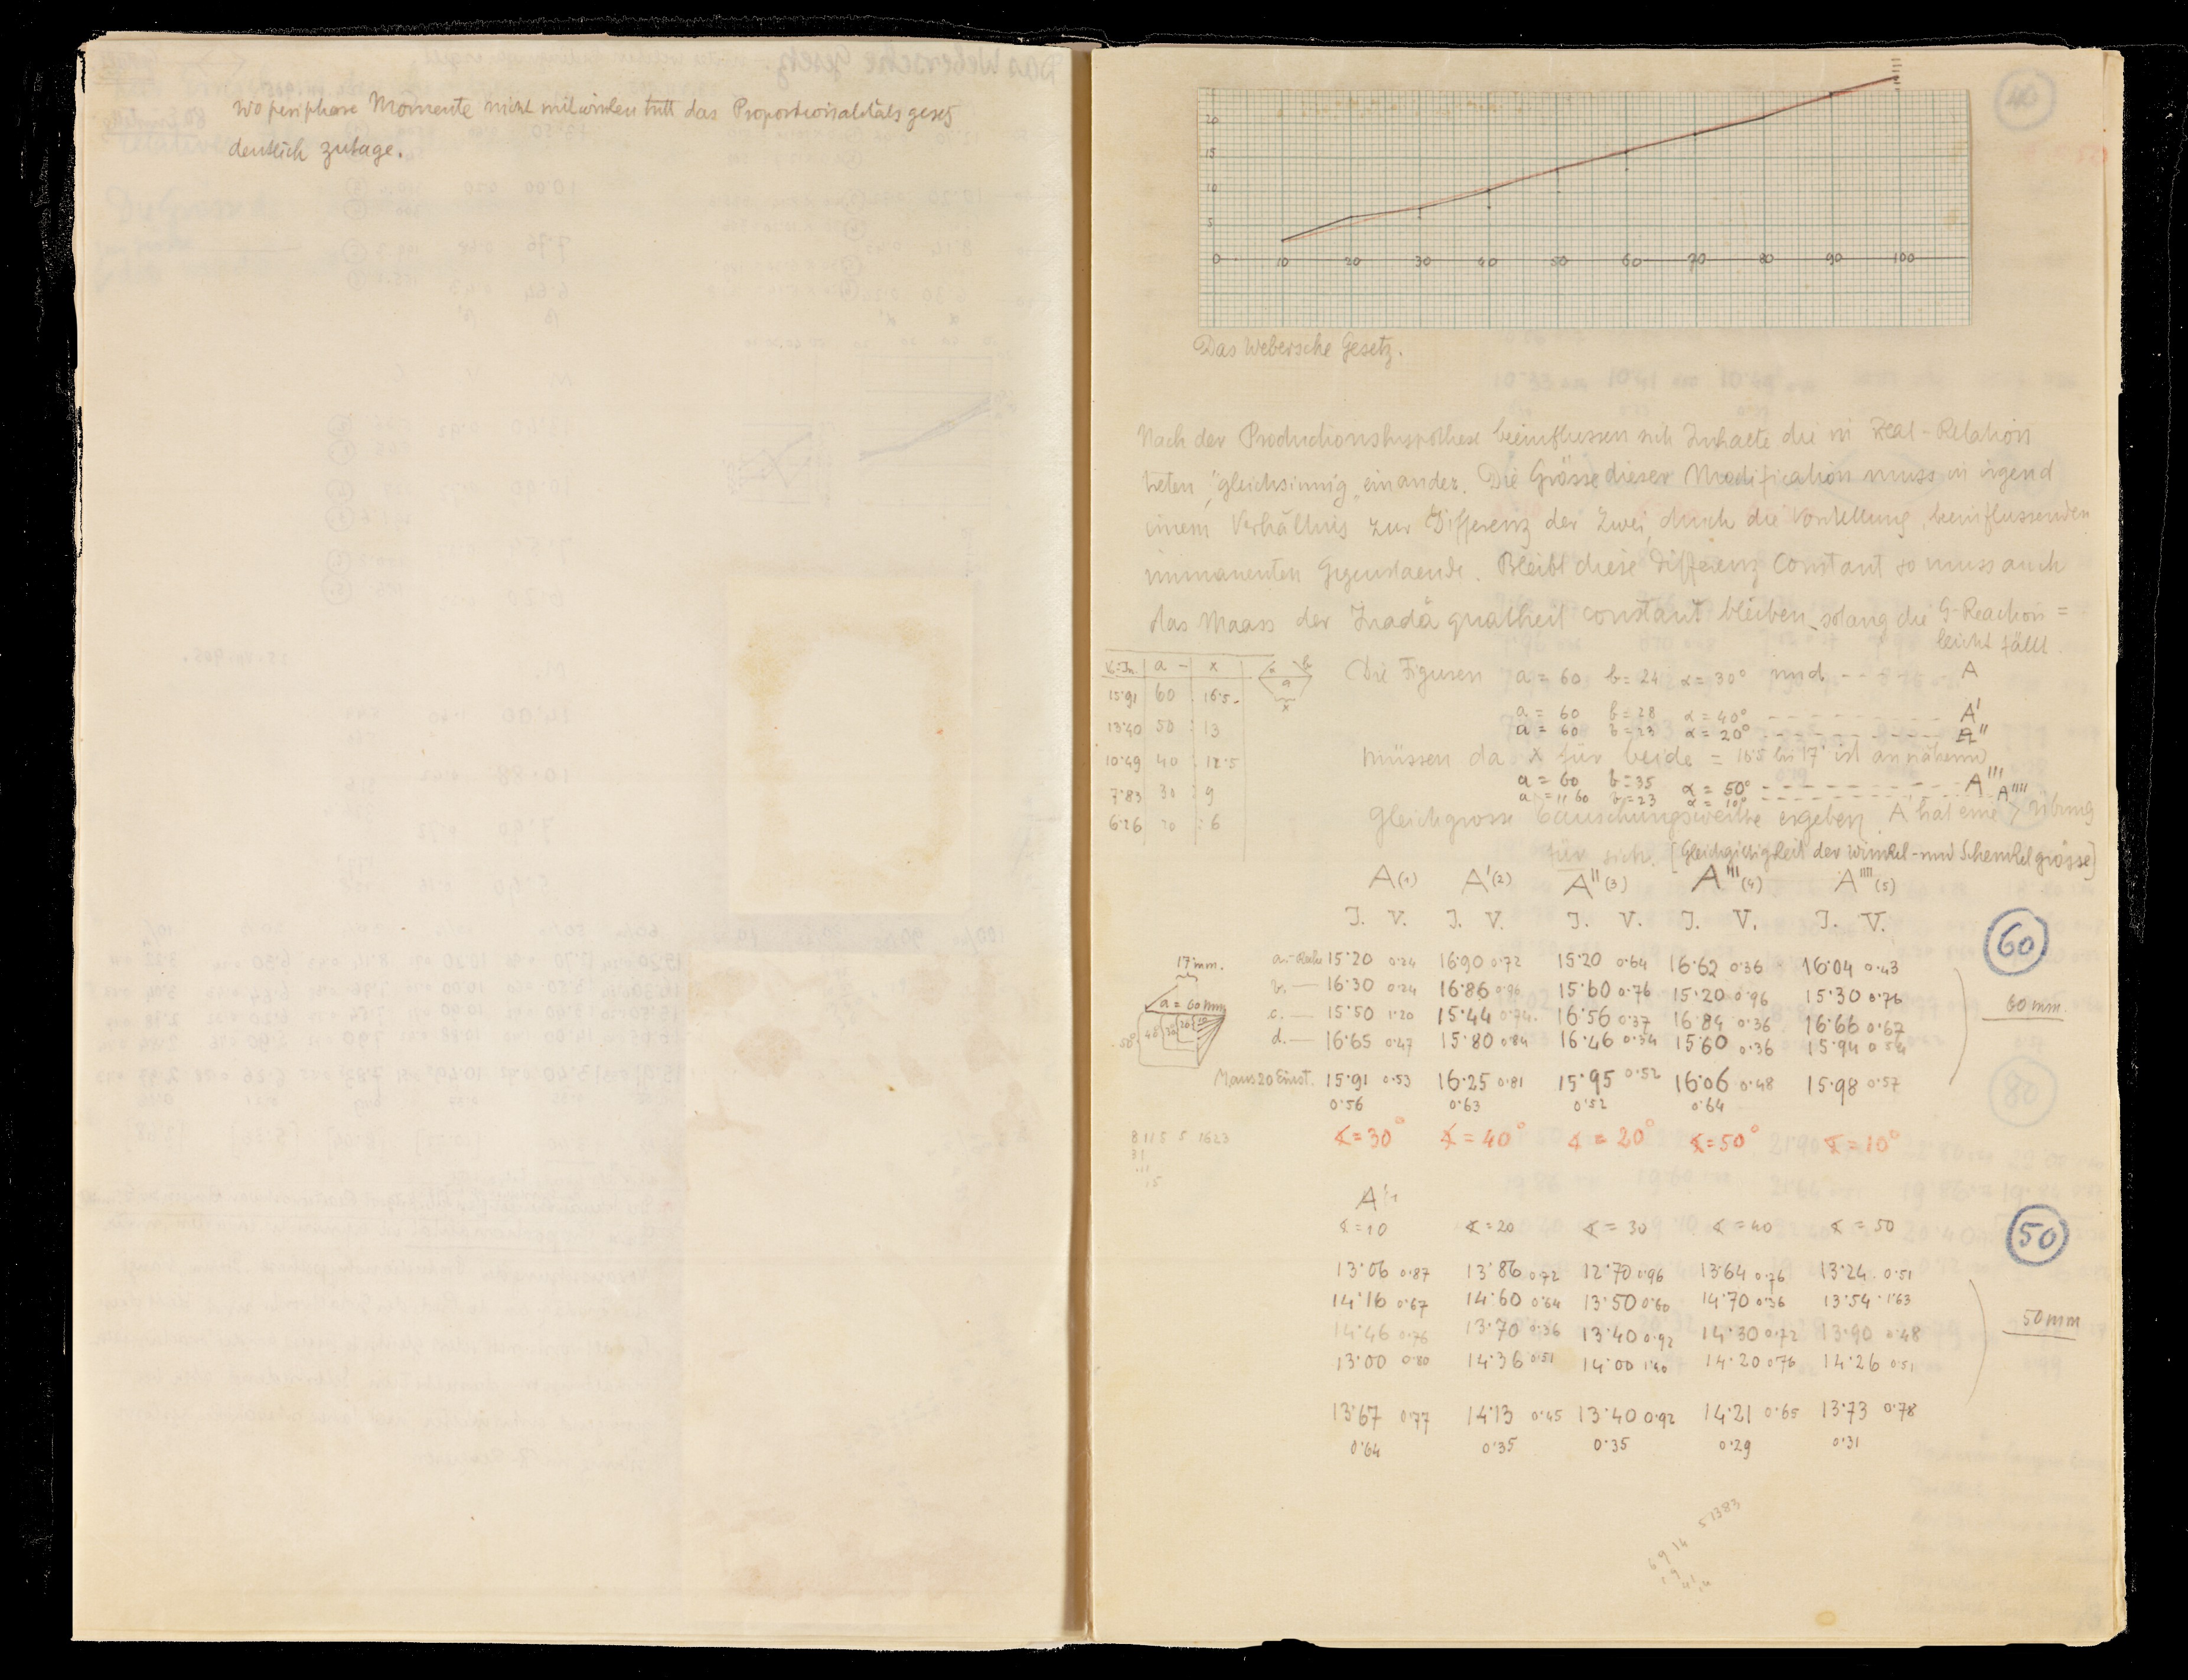 Wo periphere Momente nicht mitwirken tritt das Proportionalitätsgesetz
deutlich zutage.
20
15
10
5
0 10 20 30 40 50 60 70 80 90 100
Das Webersche Gesetz.
Nach der Productionshypothese beeinflussen sich Inhalte die in Real-Relation
treten, "gleichsinnig" einander. Die Grösse dieser Modification muss in irgend
einem Verhältnis zur Differenz der Zwei, durch die Vorstellung, beeinflussenden
immanenten Gegenstaende. Bleibt diese Differenz Constant so muss auch
das Maass der Inadäquatheit constant bleiben, solang die G-Reaction =
leicht fällt.
a - x
15·91 60 : 16·5-
13·40 50 : 13
10·49 40 : 12·5
7·83 30 : 9
6·26 20 : 6
a b
x
Die Figuren a = 60 b = 24 α = 30° und - - - A
a = 60 b = 28 α = 40° - - - A'
a = 60 b = 23 α = 20° - - - A''
müssen da x für beide = 16·5 bis 17 ist annähernd
a = 60 b = 35 α = 50° - - - A'''
a = 60 b = 23 α = 10° - - - A''''
Gleichgrosse Täuschungswerthe ergeben. A hat eine > übung
für sich. [Gleichgiltigkeit der Winkel- und Schenkelgrösse]
A(1) A'(2) A''(3) A'''(4) A''''(5)
J. V. J. V. J. V. J. V. J. V.
60
a.-Reihe 15·20 0·24 16·90 0·72 15·20 0·64 16·62 0·36 16·04 0·43
b. — 16·30 0·24 16·86 0·96 15·60 0·76 15·20 0·96 15·30 0·76
c. — 15·50 1·20 15·44 0·74 16·56 0·37 16·84 0·36 16·66 0·67
d. — 16·65 0·47 15·80 0·84 16·46 0·34 15·60 0·36 15·94 0·54
60 mm.
17 mm.
a = 60 mm
M aus 20 Einst. 15·91 0·53 16·25 0·81 15·95 0·52 16·06 0·48 15·98 0·57
0·56 0·63 0·52 0·64
∢=30° ∢=40° ∢=20° ∢=50° ∢=10°
8 11 5 5 1623
31
∢=10 ∢=20 ∢=30 ∢=40 ∢=50
50
13·06 0·87 13·86 0·72 12·70 0·96 13·64 0·76 13·24 0·51
14·16 0·67 14·60 0·64 13·50 0·60 14·70 0·36 13·54 1·63
14·46 0·76 13·70 0·36 13·40 0·92 14·30 0·72 13·90 0·48
13·00 0·80 14·36 0·51 14·00 1·40 14·20 0·76 14·26 0·51
50 mm
13·67 0·77 14·13 0·45 13·40 0·92 14·21 0·65 13·73 0·78
0·64 0·35 0·35 0·29 0·31
51383
69 14